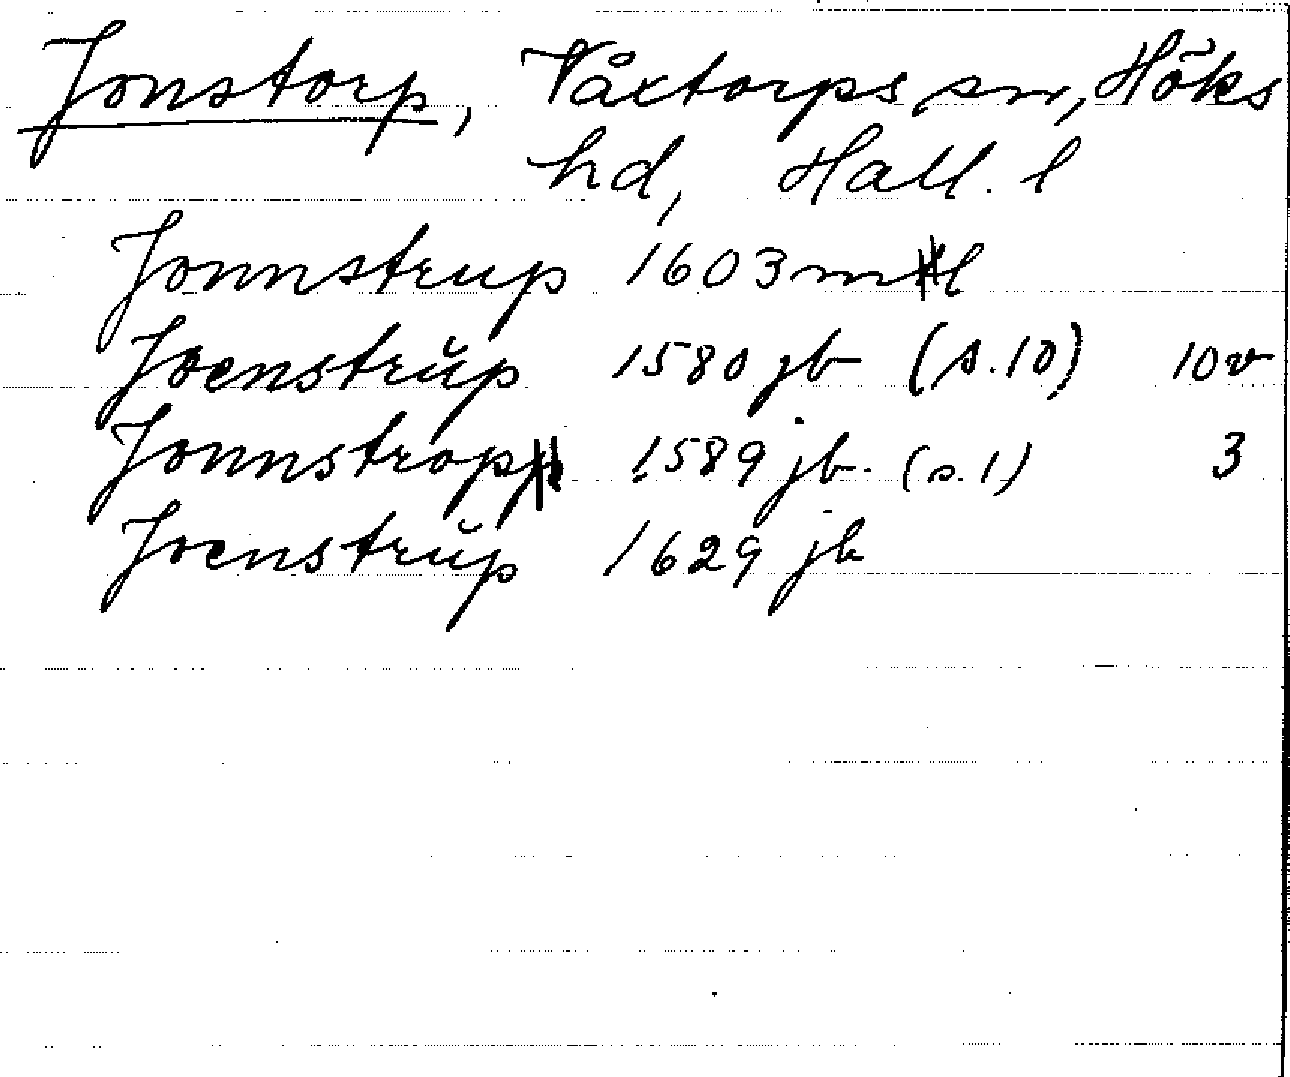 Jonstorp, Våxtorps sn, Höks
hd, Hall. l
Jonnstrup 1603 ml
Joenstrŭp 1580 jb (s.10) 10v
Jonnstrop 1589 jb. (s.1) 3
Joenstrŭp 1629 jb